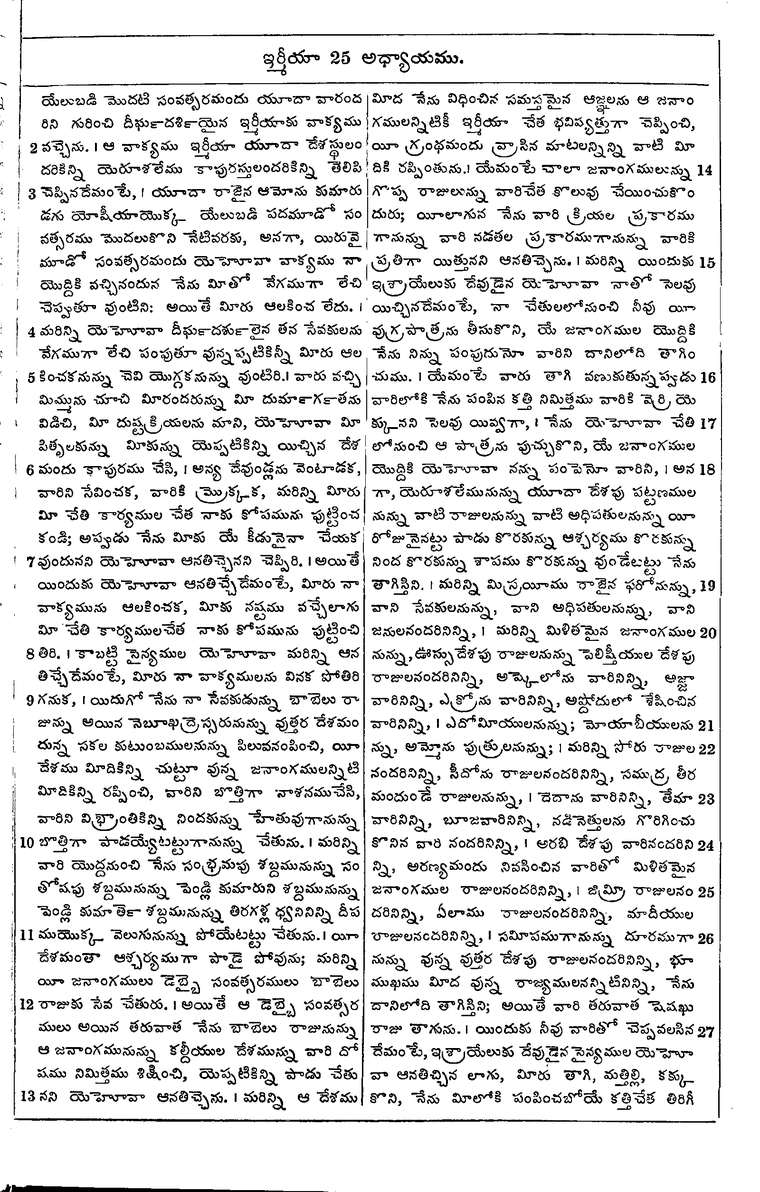 ఇర్మీయా 25 అధ్యాయము.
యేలుబడి మొదటి సంవత్సరమందు యూదా వారంద
రిని గురించి దీర్ఘదర్శియైన ఇర్మీయాకు వాక్యము
2 వచ్చెను. । ఆ వాక్యము ఇర్మీయా యూదా దేశస్థులం
దరికిన్ని యెరూశలేము కాపురస్తులందరికిన్ని తెలిపి
3 చెప్పినదేమంటే, । యూదా రాజైన ఆమోను కుమారు
డగు యోషీయాయొక్క యేలుబడి పదమూడో సం
వత్సరము మొదలుకొని నేటివరకు, అనగా, యిరువై
మూడో సంవత్సరమందు యెహోవా వాక్యము నా
యొద్దికి వచ్చినందున నేను మీతో వేగముగా లేచి
చెప్పుతూ వుంటిని: అయితే మీరు ఆలకించ లేదు. ।
4 మరిన్ని యెహోవా దీర్ఘదర్శులైన తన సేవకులను
వేగముగా లేచి పంపుతూ వున్నప్పటికిన్నీ మీరు ఆల
5 కించకనున్ను చెవి యొగ్గకనున్ను వుంటిరి. । వారు వచ్చి
మిమ్మును చూచి మీరందరున్ను మీ దుర్మార్గతను
విడిచి, మీ దుష్ట క్రియలను మాని, యెహోవా మీ
పితృలకున్ను మీకున్ను యెప్పటికిన్ని యిచ్చిన దేశ
6 మందు కాపురము చేసి, । అన్య దేవుండ్లను వెంటాడక,
వారిని సేవించక, వారికి మ్రొక్కక, మరిన్ని మీరు
మీ చేతి కార్యముల చేత నాకు కోపమును పుట్టించ
కండి; అప్పుడు నేను మీకు యే కీడువైనా చేయక
7 వుందునని యెహోవా ఆనతిచ్చెనని చెప్పిరి. । అయితే
యిందుకు యెహోవా ఆనతిచ్చేదేమంటే, మీరు నా
వాక్యమును ఆలకించక, మీకు నష్టము వచ్చేలాగు
మీ చేతి కార్యములచేత నాకు కోపమును పుట్టించి
8 తిరి. । కాబట్టి సైన్యముల యెహోవా మరిన్ని ఆన
తిచ్చేదేమంటే, మీరు నా వాక్యములను వినక పోతిరి
9 గనుక, । యిదుగో నేను నా సేవకుడున్ను బాబేలు రా
జున్ను అయిన నెబూఖద్రెస్సరునున్ను వుత్తర దేశమం
దున్న సకల కుటుంబములనున్ను పిలువనంపించి, యీ
దేశము మీదికిన్ని చుట్టూ వున్న జనాంగములన్నిటి
మీదికిన్ని రప్పించి, వారిని బొత్తిగా నాశనముచేసి,
వారిని విభ్రాంతికిన్ని నిందకున్ను హేతువుగానున్ను
10 బొత్తిగా పాడయ్యేటట్టుగానున్ను చేతును. । మరిన్ని
వారి యొద్దనుంచి నేను సంభ్రమపు శబ్దమునున్ను సం
తోషపు శబ్దమునున్ను పెండ్లి కుమారుని శబ్దమునున్ను
పెండ్లి కుమార్తె శబ్దమునున్ను తిరగళ్ల ధ్వనినిన్ని దీప
11 ముయొక్క వెలుగునున్ను పోయేటట్టు చేతును. । యీ
దేశమంతా ఆశ్చర్యముగా పాడై పోవును; మరిన్ని
యీ జనాంగములు డెబ్భై సంవత్సరములు బాబేలు
12 రాజుకు సేవ చేతురు. । అయితే ఆ డెబ్భై సంవత్సర
ములు అయిన తరువాత నేను బాబేలు రాజునున్ను
ఆ జనాంగమునున్ను కల్దీయుల దేశమున్ను వారి దో
షము నిమిత్తము శిక్షించి, యెప్పటికిన్ని పాడు చేతు
13 నని యెహోవా ఆనతిచ్చెను. । మరిన్ని ఆ దేశము
మీద నేను విధించిన సమస్తమైన ఆజ్ఞలను ఆ జనాం
గములన్నిటికీ ఇర్మీయా చేత భవిష్యత్తుగా చెప్పించి,
యీ గ్రంథమందు వ్రాసిన మాటలన్నిన్ని వాటి మీ
దికి రప్పింతును. । యేమంటే చాలా జనాంగములున్ను 14
గొప్ప రాజులున్ను వారిచేత కొలువు చేయించుకొం
దురు; యీలాగున నేను వారి క్రియల ప్రకారము
గానున్ను వారి నడతల ప్రకారముగానున్ను వారికి
ప్రతిగా యిత్తునని ఆనతిచ్చెను. । మరిన్ని యిందుకు 15
ఇశ్రాయేలుకు దేవుడైన యెహోవా నాతో సెలవు
యిచ్చినదేమంటే, నా చేతులలోనుంచి నీవు యీ
వుగ్రపాత్రను తీసుకొని, యే జనాంగముల యొద్దికి
నేను నిన్ను పంపుదునో వారిని దానిలోది తాగిం
చుము. । యేమంటే వారు తాగి వణుకుతున్నప్పుడు 16
వారిలోకి నేను పంపిన కత్తి నిమిత్తము వారికి వెర్రి యె
క్కునని సెలవు యివ్వగా, । నేను యెహోవా చేతి 17
లోనుంచి ఆ పాత్రను పుచ్చుకొని, యే జనాంగముల
యొద్దికి యెహోవా నన్ను పంపెనో వారిని, । అన 18
గా, యెరూశలేమునున్ను యూదా దేశపు పట్టణముల
నున్ను వాటి రాజులనున్ను వాటి అధిపతులనున్ను యీ
రోజువైనట్టు పాడు కొరకున్ను ఆశ్చర్యము కొరకున్ను
నింద కొరకున్ను శాపము కొరకున్ను వుండేటట్టు నేను
తాగిస్తిని. । మరిన్ని మిస్రయీము రాజైన ఫరోనున్ను, 19
వాని సేవకులనున్ను, వాని అధిపతులనున్ను, వాని
జనులనందరినిన్ని, । మరిన్ని మిళితమైన జనాంగముల 20
నున్ను, ఊస్సు దేశపు రాజులనున్ను పెలిష్తీయుల దేశపు
రాజులనందరినిన్ని, అష్కెలోను వారినిన్ని, అజ్జా
వారినిన్ని, ఎక్రోను వారినిన్ని, అష్డోదులో శేషించిన
వారినిన్ని, । ఎదోమీయులనున్ను; మోయాబీయులను 21
న్ను, అమ్మోను పుత్రులనున్ను; । మరిన్ని సోరు రాజుల 22
నందరినిన్ని, సీదోను రాజులనందరినిన్ని, సముద్ర తీర
మందుండే రాజులనున్ను, । దెదాను వారినిన్ని, తేమా 23
వారినిన్ని, బూజవారినిన్ని, నడినెత్తులను గొరిగించు
కొనిన వారి నందరినిన్ని, । అరబి దేశపు వారినందరిని 24
న్ని, అరణ్యమందు నివసించిన వారితో మిళితమైన
జనాంగముల రాజులనందరినిన్ని, । జిమ్రీ రాజులనం 25
దరినిన్ని, ఏలాము రాజులనందరినిన్ని, మాదీయుల
రాజులనందరినిన్ని, । సమీపముగానున్ను దూరముగా 26
నున్ను వున్న వుత్తర దేశపు రాజులనందరినిన్ని, భూ
ముఖము మీద వున్న రాజ్యములనన్నిటినిన్ని, నేను
దానిలోది తాగిస్తిని; అయితే వారి తరువాత షెషఖు
రాజు తాగును. । యిందుకు నీవు వారితో చెప్పవలసిన 27
దేమంటే, ఇశ్రాయేలుకు దేవుడైన సైన్యముల యెహో
వా ఆనతిచ్చిన లాగు, మీరు తాగి, మత్తిల్లి, కక్కు
కొని, నేను మీలోకి పంపించబోయే కత్తిచేత తిరిగీ